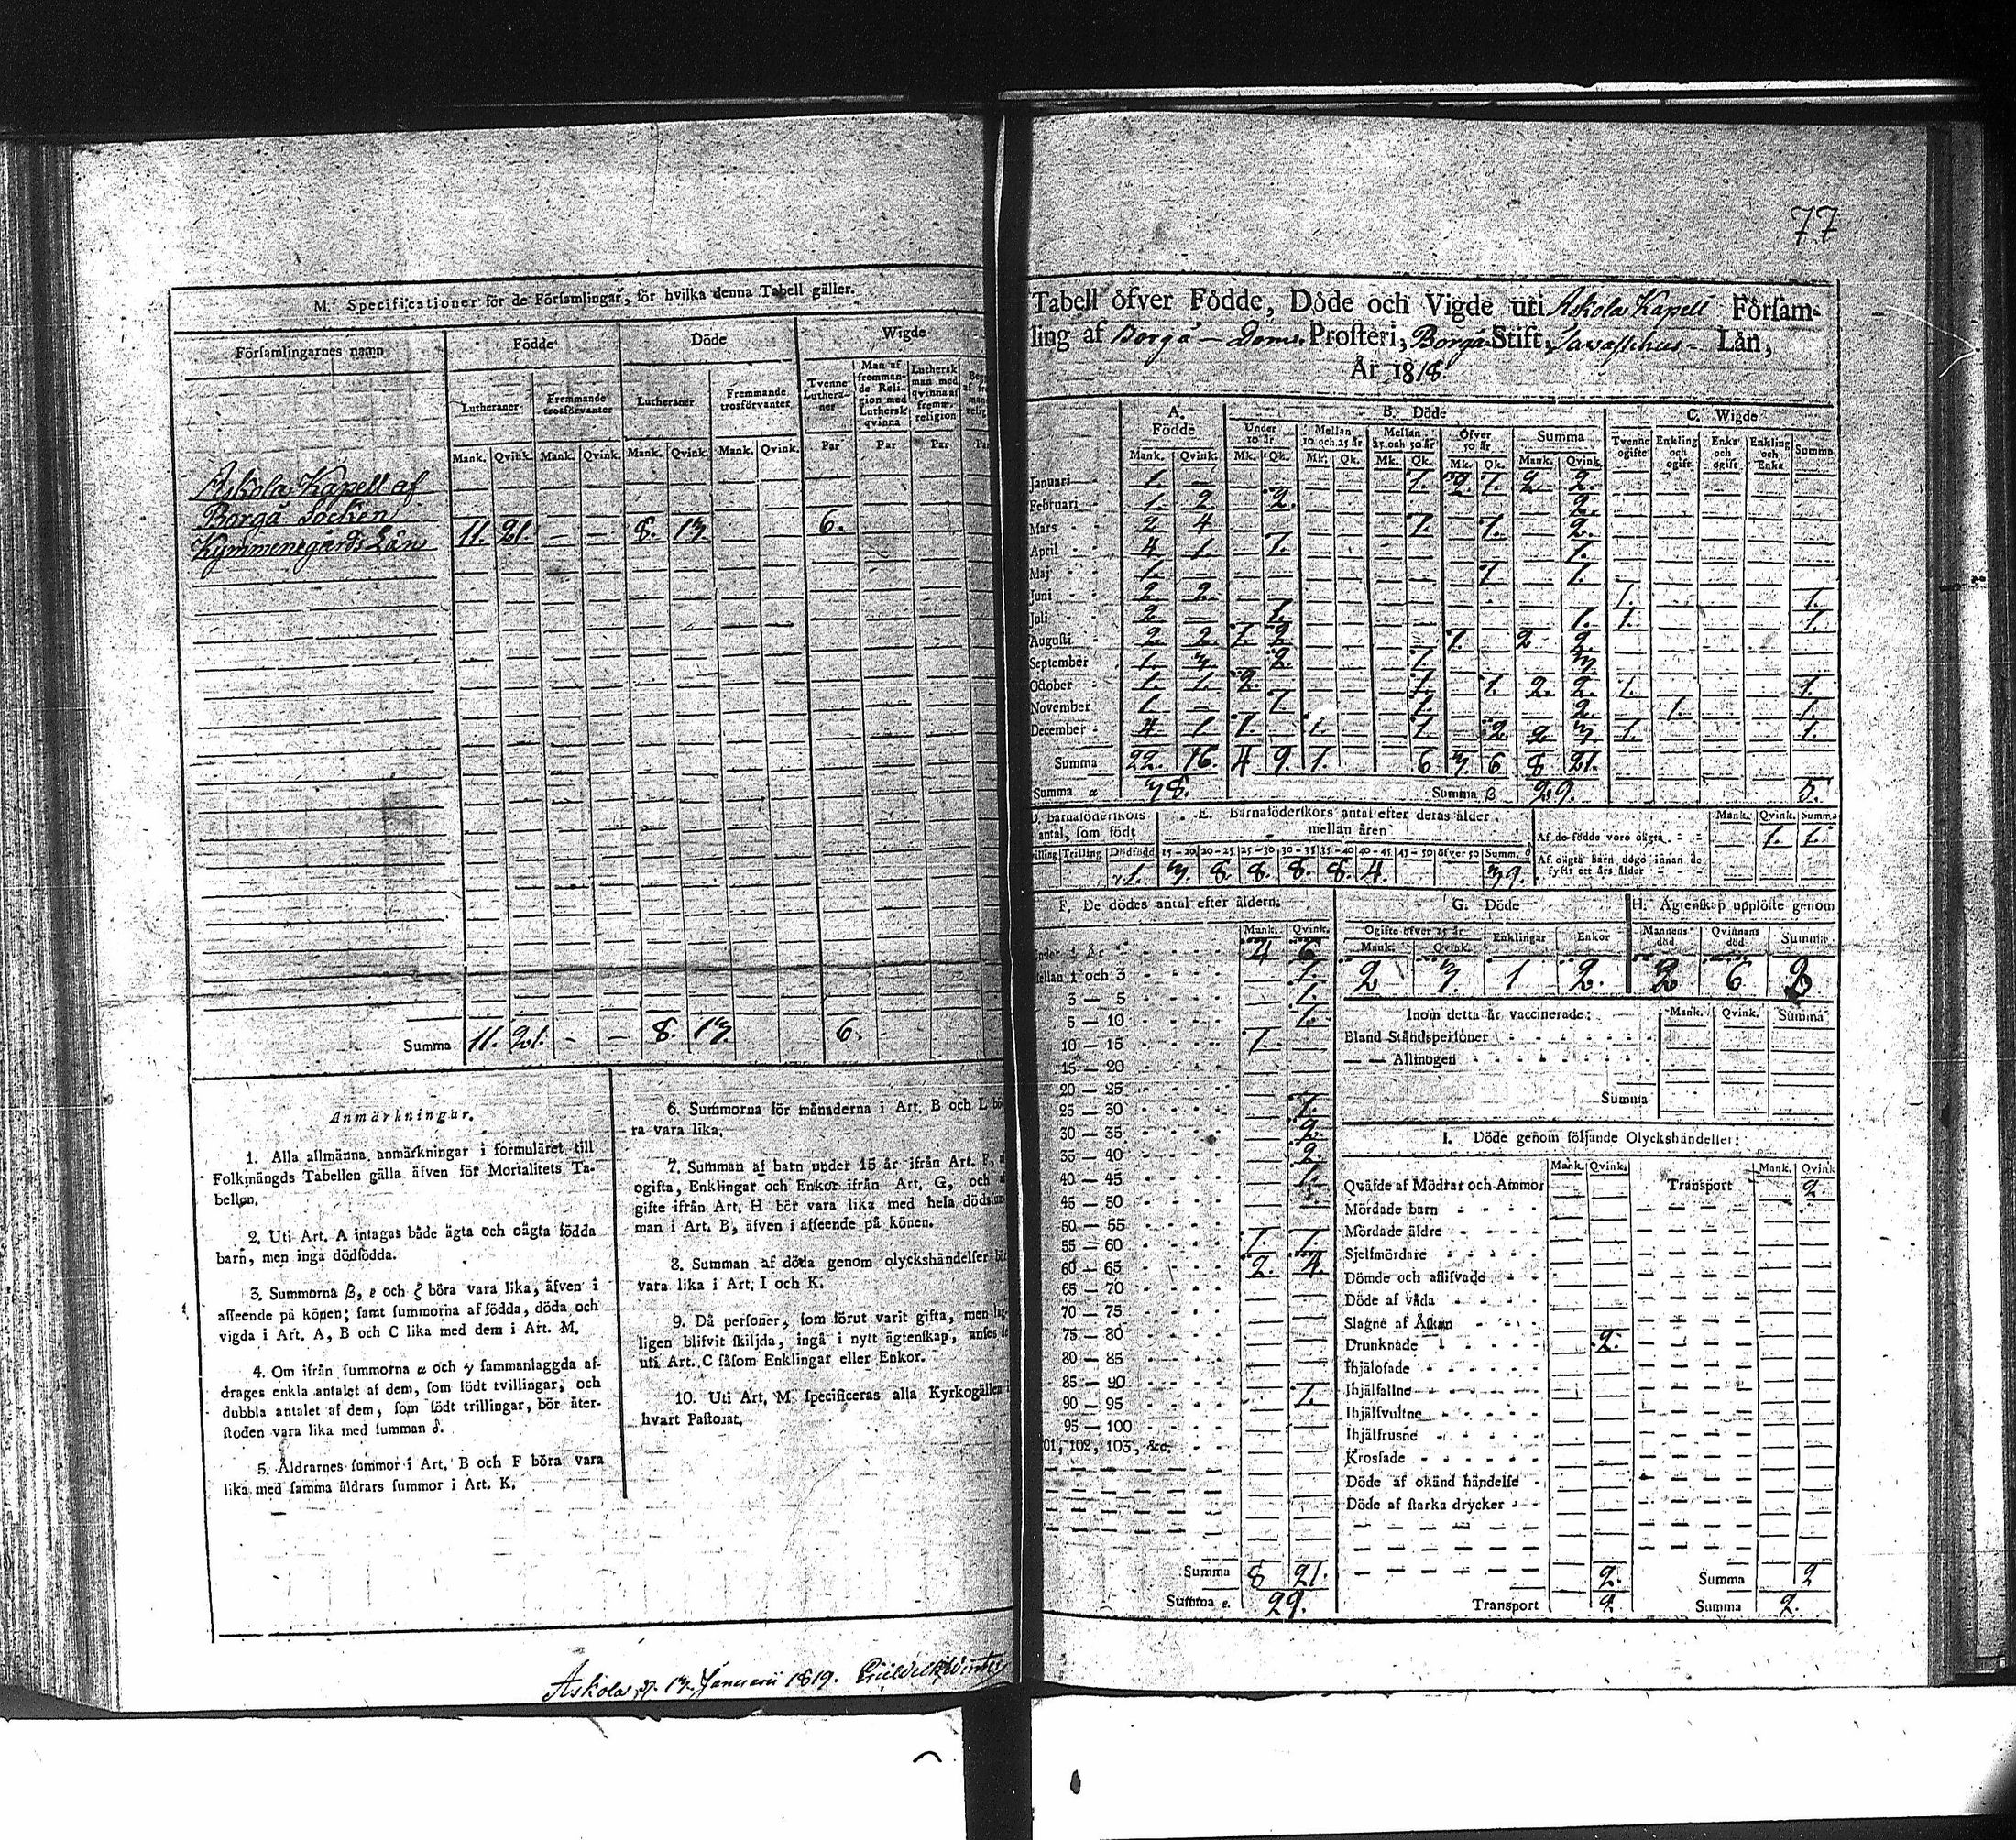 M. Specificationer för de Församlingar, för hvilka denna Tabell gäller.
Församlingarnes namn
Födde
Döde
Wigde
Lutheraner
Fremmande trosförvanter
Lutheraner
Fremmande trosförvanter
Tvenne Lutheraner
Man af fremmande Religion med Luthersk qvinna
Luthersk man med qvinna af fremm. religion
Mank. Qvink. Mank. Qvink. Mank. Qvink. Mank. Qvink. Par Par Par
Askola Kapell af
Borgå Socken
Kymmenegårds Län 11. 21. — — 8. 13. — — 6.
Summa 11. 21. - — 8. 13. 6.
Anmärkningar.
1. Alla allmänna anmärkningar i formuläret till
Folkmängds Tabellen gälla äfven för Mortalitets Ta-
bellen.
2. Uti Art. A intagas både ägta och oägta födda
barn, men inga dödfödda.
3. Summorna β, ε och ζ böra vara lika, äfven i
afseende på könen; samt summorna af födda, döda och
vigda i Art. A, B och C lika med dem i Art. M.
4. Om ifrån summorna α och γ sammanlaggda af-
drages enkla antalet af dem, som födt tvillingar, och
dubbla antalet af dem, som födt trillingar, bör åter-
stoden vara lika med summan δ.
5. Åldrarnes summor i Art. B och F böra vara
lika med samma åldrars summor i Art. K.
6. Summorna för månaderna i Art. B och L bö-
ra vara lika.
7. Summan af barn under 15 år ifrån Art. F,
ogifta, Enklingar och Enkor ifrån Art. G, och
gifte ifrån Art. H bör vara lika med hela dödssum
man i Art. B, äfven i afseende på könen.
8. Summan af döda genom olyckshändelser bör
vara lika i Art. I och K.
9. Då personer, som förut varit gifta, men lag-
ligen blifvit skiljda, ingå i nytt ägtenskap, anses de
uti Art. C såsom Enklingar eller Enkor.
10. Uti Art. M specificeras alla Kyrkogällen i
hvart Pastorat.
Askola, 13. Januarii 1819.
77
Tabell öfver Födde, Döde och Vigde uti Askola Kapell Försam-
ling af Borgå - Doms Prosteri, Borgå Stift, Tavastehus - Län,
År 1818.
A. Födde
B. Döde
C. Wigde
Under 10 år
Mellan 10 och 25 år
Mellan 25 och 50 år
Öfver 50 år
Summa
Tvenne ogifte
Enkling och ogift
Enka och ogift
Enkling och Enka
Summa
Mank. Qvink. Mk. Qk. Mk. Qk. Mk. Qk. Mk. Qk. Mank. Qvink.
Januari 1. — 1. 2. 1. 2. 2.
Februari 1. 2. 2. 2.
Mars 2 4 1. 1. 2.
April 4. 1. 1. 1.
Maj 1. — 1 1.
Juni 2 2. 1. 1.
Juli 2 — 1. 1. 1. 1.
Augusti 2 2 1. 2 1. 2 2
September 1. 3 2. 1. 3
October 1. 1. 2. 1. 1. 2. 2. 1. 1.
November 1. — 1. 1. 2. 1. 1
December 4 1 1. 1. 1 2 2 3 1. 1.
Summa 22. 16. 4 9 1. 6 3 6 8 21.
Summa α 38. Summa β 29. 5.
D. Barnaföderskors antal, som födt
E. Barnaföderskors antal efter deras ålder mellan åren
Trilling Dödfödd 15-20 20-25 25-30 30-35 35-40 40-45 45-50 öfver 50 Summ. δ
1. 3. 8. 8. 8. 8. 4. 39.
Mank. Qvink. Summa
Af de födde voro oägta 1. 1.
Af oägta barn dogo innan de fyllt ett års ålder
F. De dödes antal efter åldern.
Mank. Qvink.
1 år 4 6
1 och 3 1.
3 — 5 1.
5 — 10 1.
10 — 15 1.
15 — 20
20 — 25
25 — 30 1.
30 — 35 2.
35 — 40 2.
40 — 45 1.
45 — 50
50 — 55
55 — 60 1. 1.
60 — 65 2. 4.
65 — 70
70 — 75
75 — 80
80 — 85
85 — 90
90 — 95 1.
95 — 100
101, 102, 103, &c.
Summa 8 21.
Summa ε. 29.
G. Döde
Ogifte öfver 15 år
Mank. Qvink. Enklingar Enkor
2 3. 1 2.
H. Ägtenskap upplöste genom
Mannens död Qvinnans död Summa
2 6 8
Inom detta år vaccinerade: Mank. Qvink. Summa
Bland Ståndspersoner
— — Allmogen
Summa
I. Döde genom följande Olyckshändelser:
Mank. Qvink. Mank. Qvink
Qväfde af Mödrar och Ammor Transport 2.
Mördade barn
Mördade äldre
Sjelfmördare
Dömde och aflifvade
Döde af våda
Slagne af Åskan
Drunknade 2.
Ihjälosade
Ihjälfallne
Ihjälsvultne
Ihjälfrusne
Krossade
Döde af okänd händelse
Döde af starka drycker
2. Summa 2
Transport 2. Summa 2.